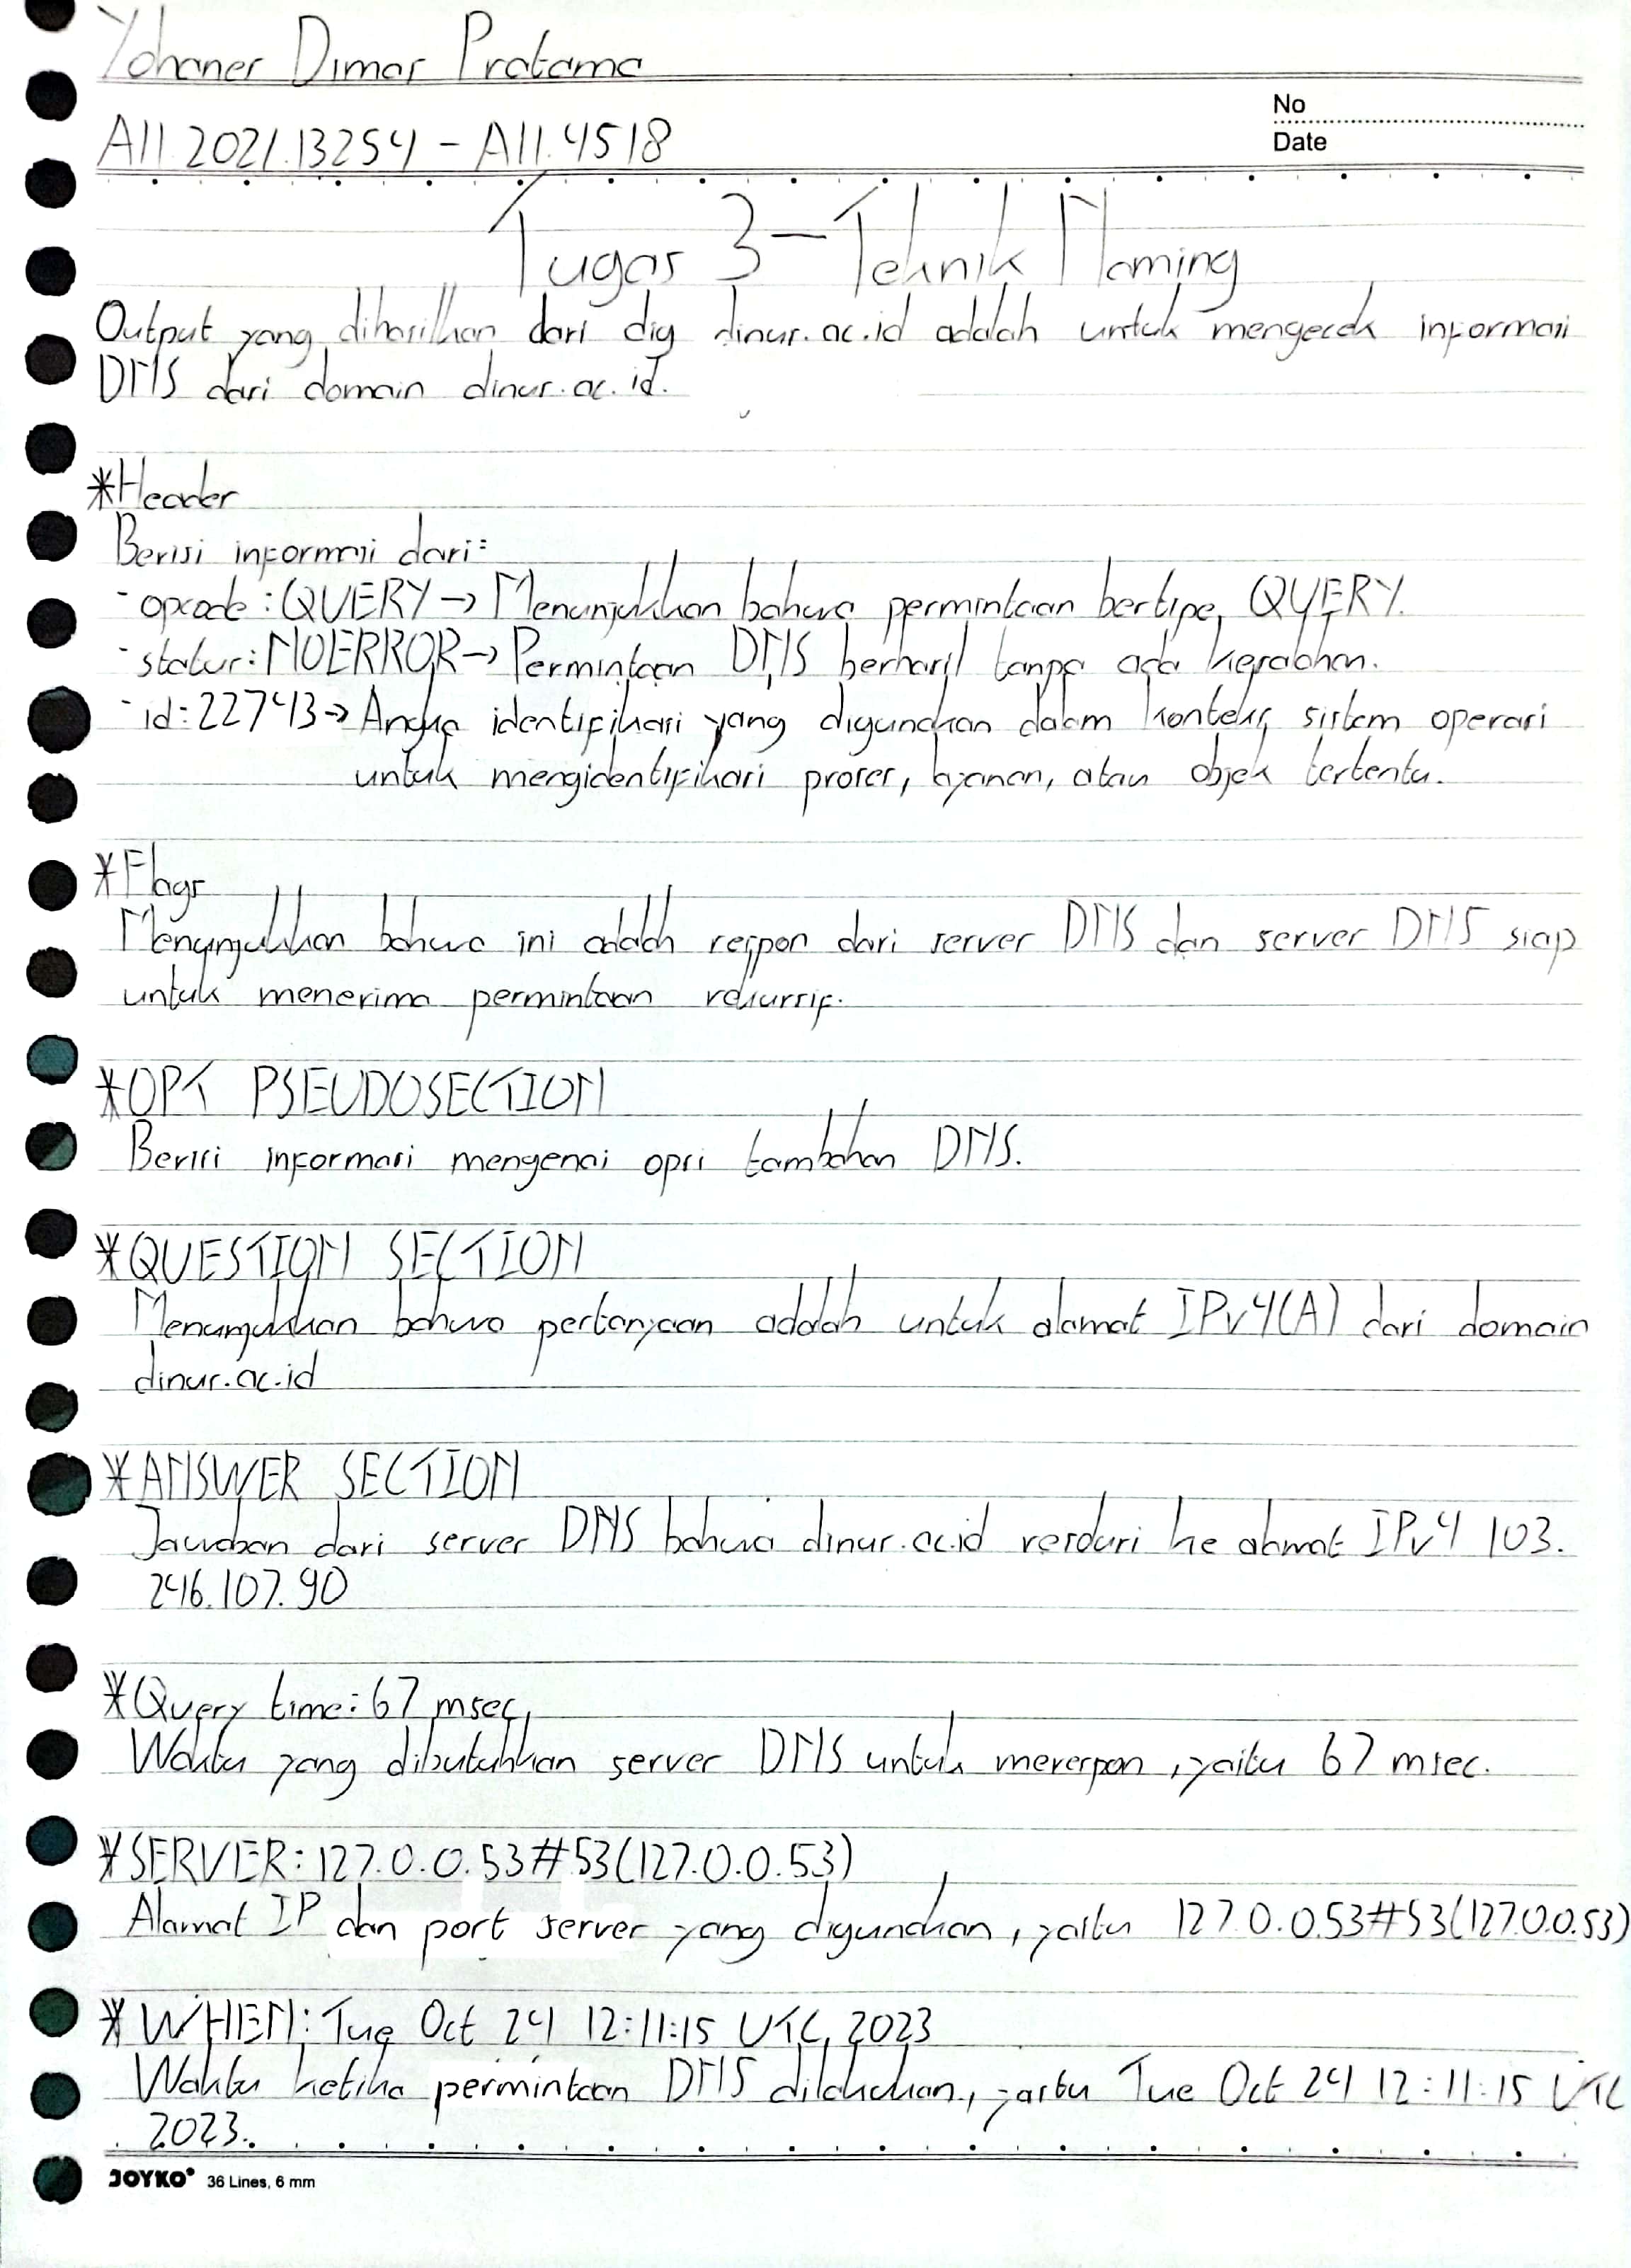 Yohanes Dimas Pratama
No
A11.2021.13254 - A11.4518
Date
Tugas 3 - Teknik Naming
Output yang dihasilkan dari dig dinus.ac.id adalah untuk mengecek informasi
DNS dari domain dinus.ac.id.
*Header
Berisi informasi dari:
- opcode: QUERY → Menunjukkan bahwa permintaan bertipe QUERY.
- status: NOERROR → Permintaan DNS berhasil tanpa ada kesalahan.
- id: 22743 → Angka identifikasi yang digunakan dalam konteks sistem operasi
untuk mengidentifikasi proses, layanan, atau objek tertentu.
*Flags
Menunjukkan bahwa ini adalah respon dari server DNS dan server DNS siap
untuk menerima permintaan rekursif.
*OPT PSEUDOSECTION
Berisi informasi mengenai opsi tambahan DNS.
*QUESTION SECTION
Menunjukkan bahwa pertanyaan adalah untuk alamat IPv4(A) dari domain
dinus.ac.id
*ANSWER SECTION
Jawaban dari server DNS bahwa dinus.ac.id resolusi ke alamat IPv4 103.
246.107.90
*Query time: 67 msec
Waktu yang dibutuhkan server DNS untuk merespon, yaitu 67 msec.
*SERVER: 127.0.0.53#53(127.0.0.53)
Alamat IP dan port server yang digunakan, yaitu 127.0.0.53#53(127.0.0.53)
*WHEN: Tue Oct 24 12:11:15 UTC 2023
Waktu ketika permintaan DNS dilakukan, yaitu Tue Oct 24 12:11:15 UTC
2023.
JOYKO® 36 Lines, 6 mm